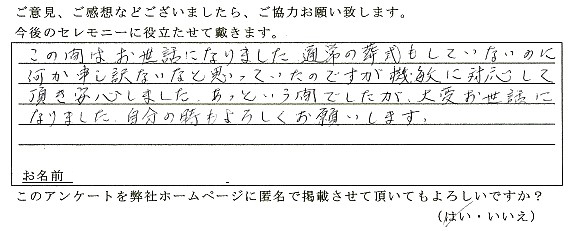 ご意見、ご感想などございましたら、ご協力お願い致します。
今後のセレモニーに役立たせて戴きます。
この間はお世話になりました。通常の葬式もしていないのに
何か申し訳ないなと思っていたのですが機敏に対応して
頂き安心しました。あっという間でしたが、大変お世話に
なりました。自分の時もよろしくお願いします。
お名前
このアンケートを弊社ホームページに匿名で掲載させて頂いてもよろしいですか？
（はい・いいえ）